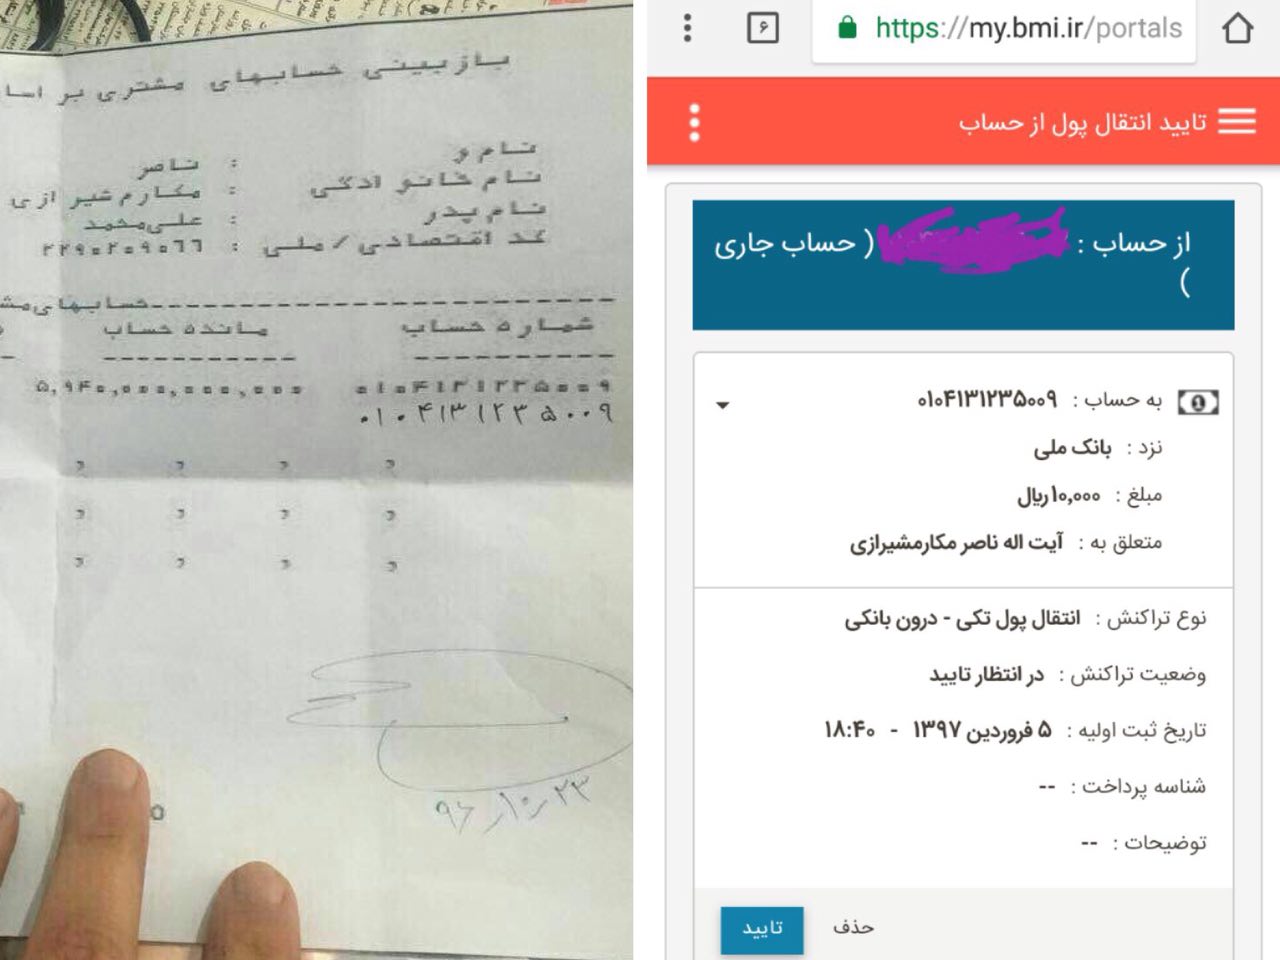 بازبینی حسابهای مشتری بر اسا
نام و : ناصر
نام خانوادگی : مکارم شیرازی
نام پدر : علی‌محمد
کد اقتصادی/ملی : ۲۲۹۰۲۰۹۰۶۶
--------------------حسابهای‌مش
شماره حساب مانده حساب
۰۱۰۴۱۳۱۲۳۵۰۰۹ ۵,۹۴۰,۰۰۰,۰۰۰,۰۰۰
۰۱۰۴۱۳۱۲۳۵۰۰۹
۹۶/۱۰/۲۳
۶ https://my.bmi.ir/portals
تایید انتقال پول از حساب
از حساب : ( حساب جاری
)
به حساب : ۰۱۰۴۱۳۱۲۳۵۰۰۹
نزد : بانک ملی
مبلغ : ۱۰,۰۰۰ریال
متعلق به : آیت اله ناصر مکارمشیرازی
نوع تراکنش : انتقال پول تکی - درون بانکی
وضعیت تراکنش : در انتظار تایید
تاریخ ثبت اولیه : ۵ فروردین ۱۳۹۷ - ۱۸:۴۰
شناسه پرداخت : --
توضیحات : --
حذف تایید